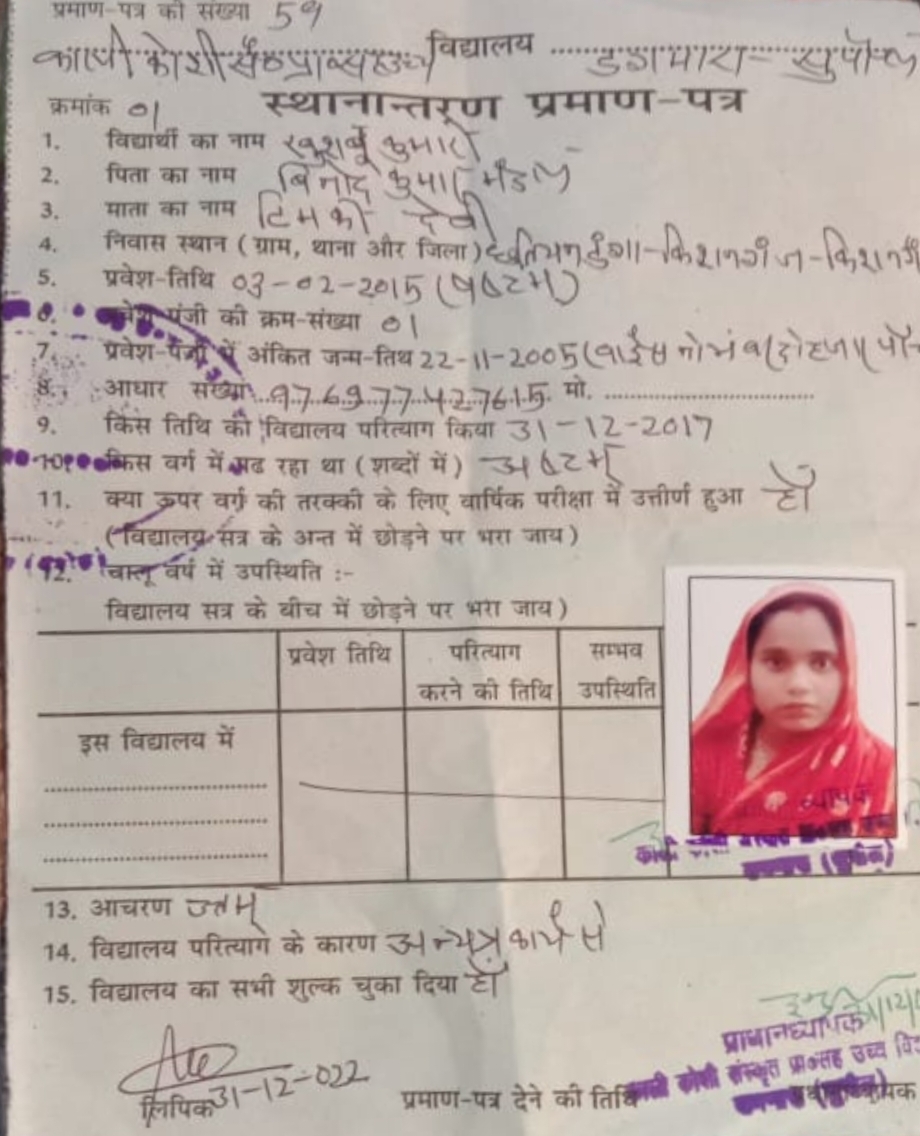 प्रमाण-पत्र की संख्या 59
विद्यालय डगमारा-सुपौल
क्रमांक 01 स्थानान्तरण प्रमाण-पत्र
1. विद्यार्थी का नाम खुशबू कुमारी
2. पिता का नाम बिनोद कुमार मंडल
3. माता का नाम टिमकी देवी
4. निवास स्थान (ग्राम, थाना और जिला) किशनगंज-किशनगं
5. प्रवेश-तिथि 03-02-2015 (षष्टम)
6. प्रवेश पंजी की क्रम-संख्या 01
7. प्रवेश-पंजी में अंकित जन्म-तिथ 22-11-2005 (बाईस
8. आधार संख्या 976977427615 मो.
9. किस तिथि को विद्यालय परित्याग किया 31-12-2017
10. किस वर्ग में पढ रहा था (शब्दों में) अष्टम्
11. क्या ऊपर वर्ग की तरक्की के लिए वार्षिक परीक्षा में उत्तीर्ण हुआ हाँ
(विद्यालय सत्र के अन्त में छोड़ने पर भरा जाय)
12. चालू वर्ष में उपस्थिति :-
विद्यालय सत्र के बीच में छोड़ने पर भरा जाय)
प्रवेश तिथि परित्याग करने की तिथि सम्भव उपस्थिति
इस विद्यालय में
13. आचरण उत्तम्
14. विद्यालय परित्याग के कारण अन्यत्र कार्य से
15. विद्यालय का सभी शुल्क चुका दिया हाँ
प्राधानध्यापक
31-12-022
लिपिक
प्रमाण-पत्र देने की तिथि